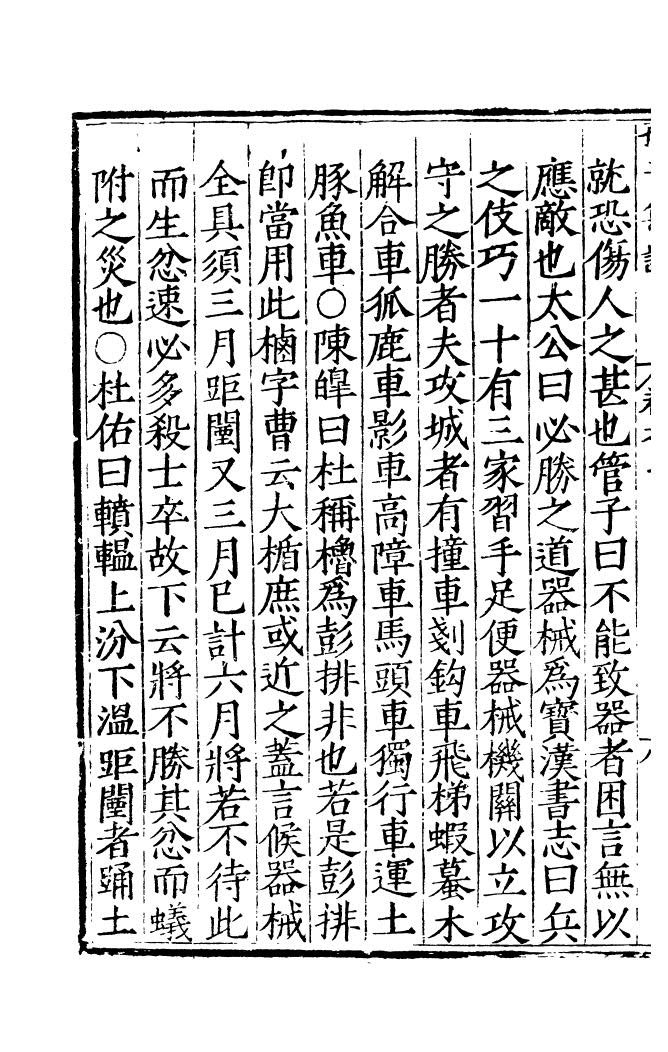 就恐傷人之甚也管子曰不能致器者困言無以
應敵也太公曰必勝之道器械爲寶漢書志曰兵
之伎巧一十有三家習手足便器械機關以立攻
守之勝者夫攻城者有撞車剗鈎車飛梯蝦蟇木
解合車狐鹿車影車高障車馬頭車獨行車運土
豚魚車○陳皥曰杜稱櫓爲彭排非也若是彭排
卽當用此樐字曹云大楯庶或近之蓋言候器械
全具須三月距闉又三月已計六月將若不待此
而生忿速必多殺士卒故下云將不勝其忿而蟻
附之災也○杜佑曰轒轀上汾下溫距闉者踊土